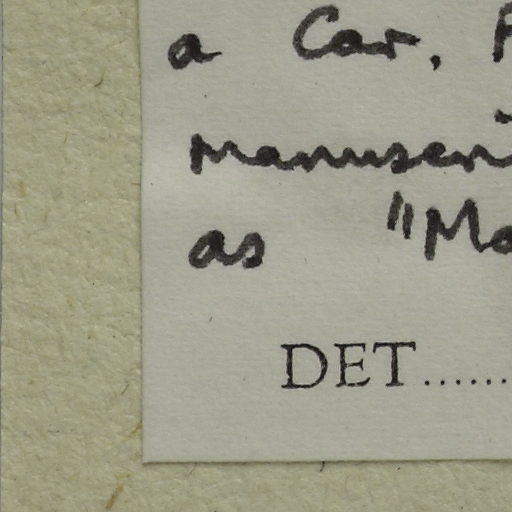 a Car.
manuscri
as "Mo
DET.......